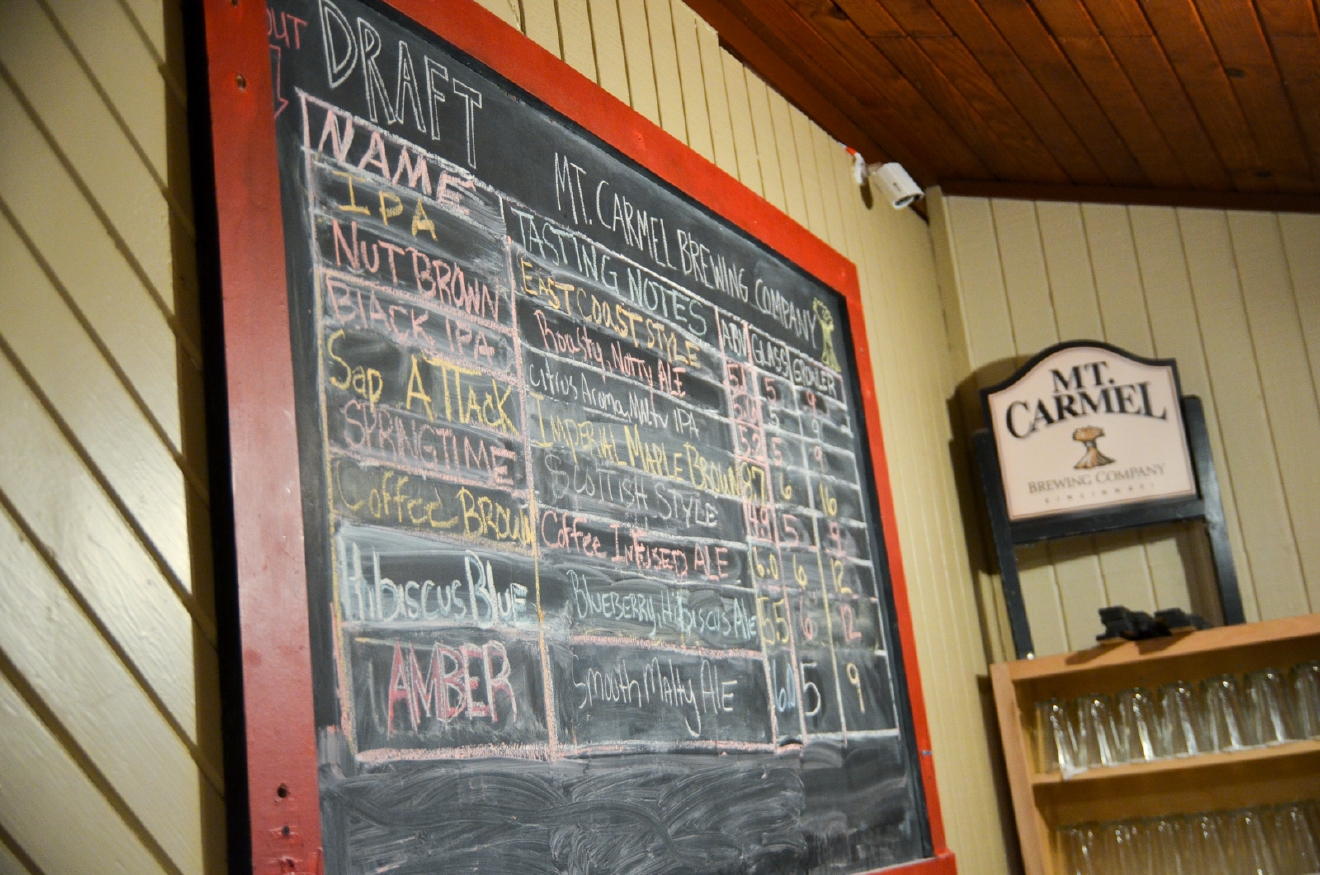 OUT
DRAFT
MT. CARMEL BREWING COMPANY
NAME TASTING NOTES ABV GLASS GROWLER
IPA EAST COAST STYLE 5 9
NUT BROWN Roasty, Nutty ALE 5 9
BLACK IPA Citrus Aroma, Malty IPA 5 9
Sap ATTACK IMPERIAL MAPLE BROWN 8.7 6 16
SPRINGTIME SCOTTISH STYLE 4.9 5 9
Coffee BROWN Coffee INFUSED ALE 6.0 6 12
Hibiscus BLUE BLUEBERRY, HIBISCUS Ale 5.5 6 12
AMBER Smooth Malty ALE 6.0 5 9
MT.
CARMEL
BREWING COMPANY
CINCINNATI